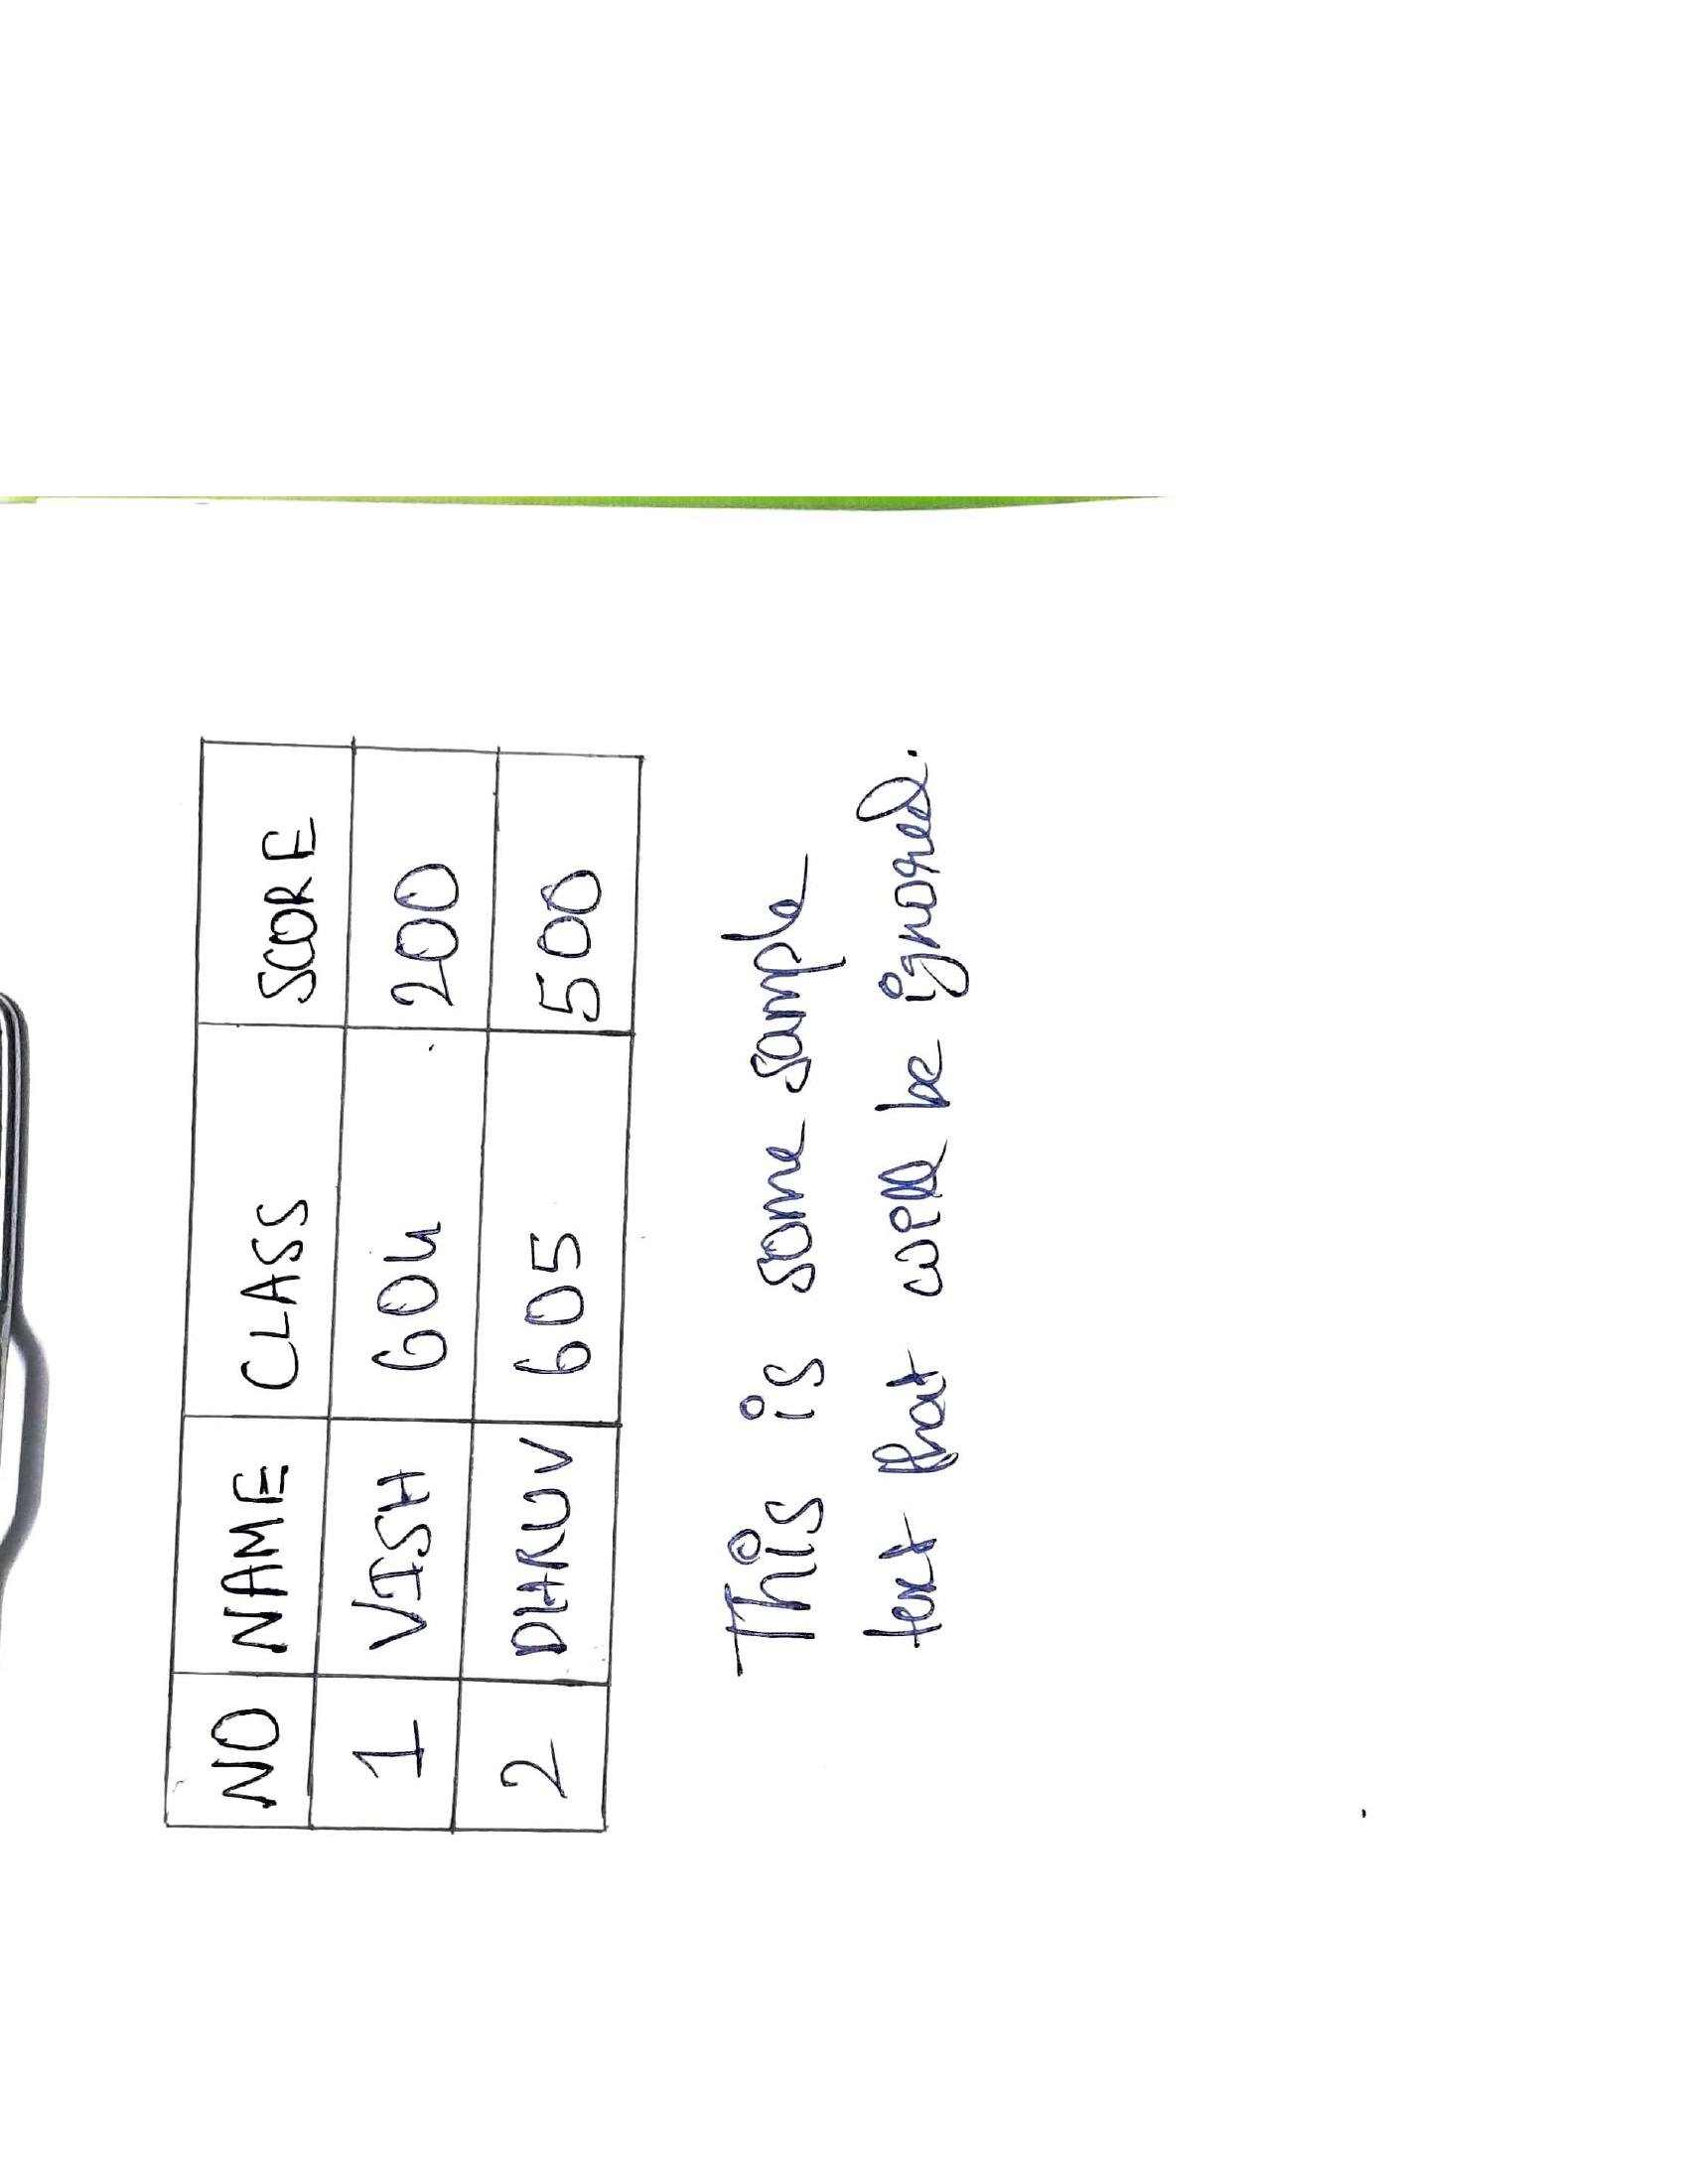 NO NAME CLASS SCORE
1 VISH 604 200
2 DHRUV 605 500
This is some sample
text that will be ignored.